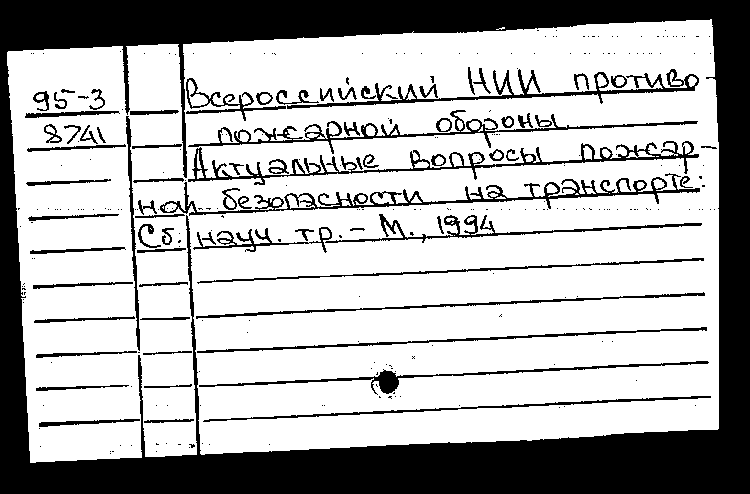 95-3 Всероссийский НИИ противо-
8741 пожарной обороны
Актуальные вопросы пожар-
ной безопасности на транспорте:
Сб. науч. тр. - М., 1994